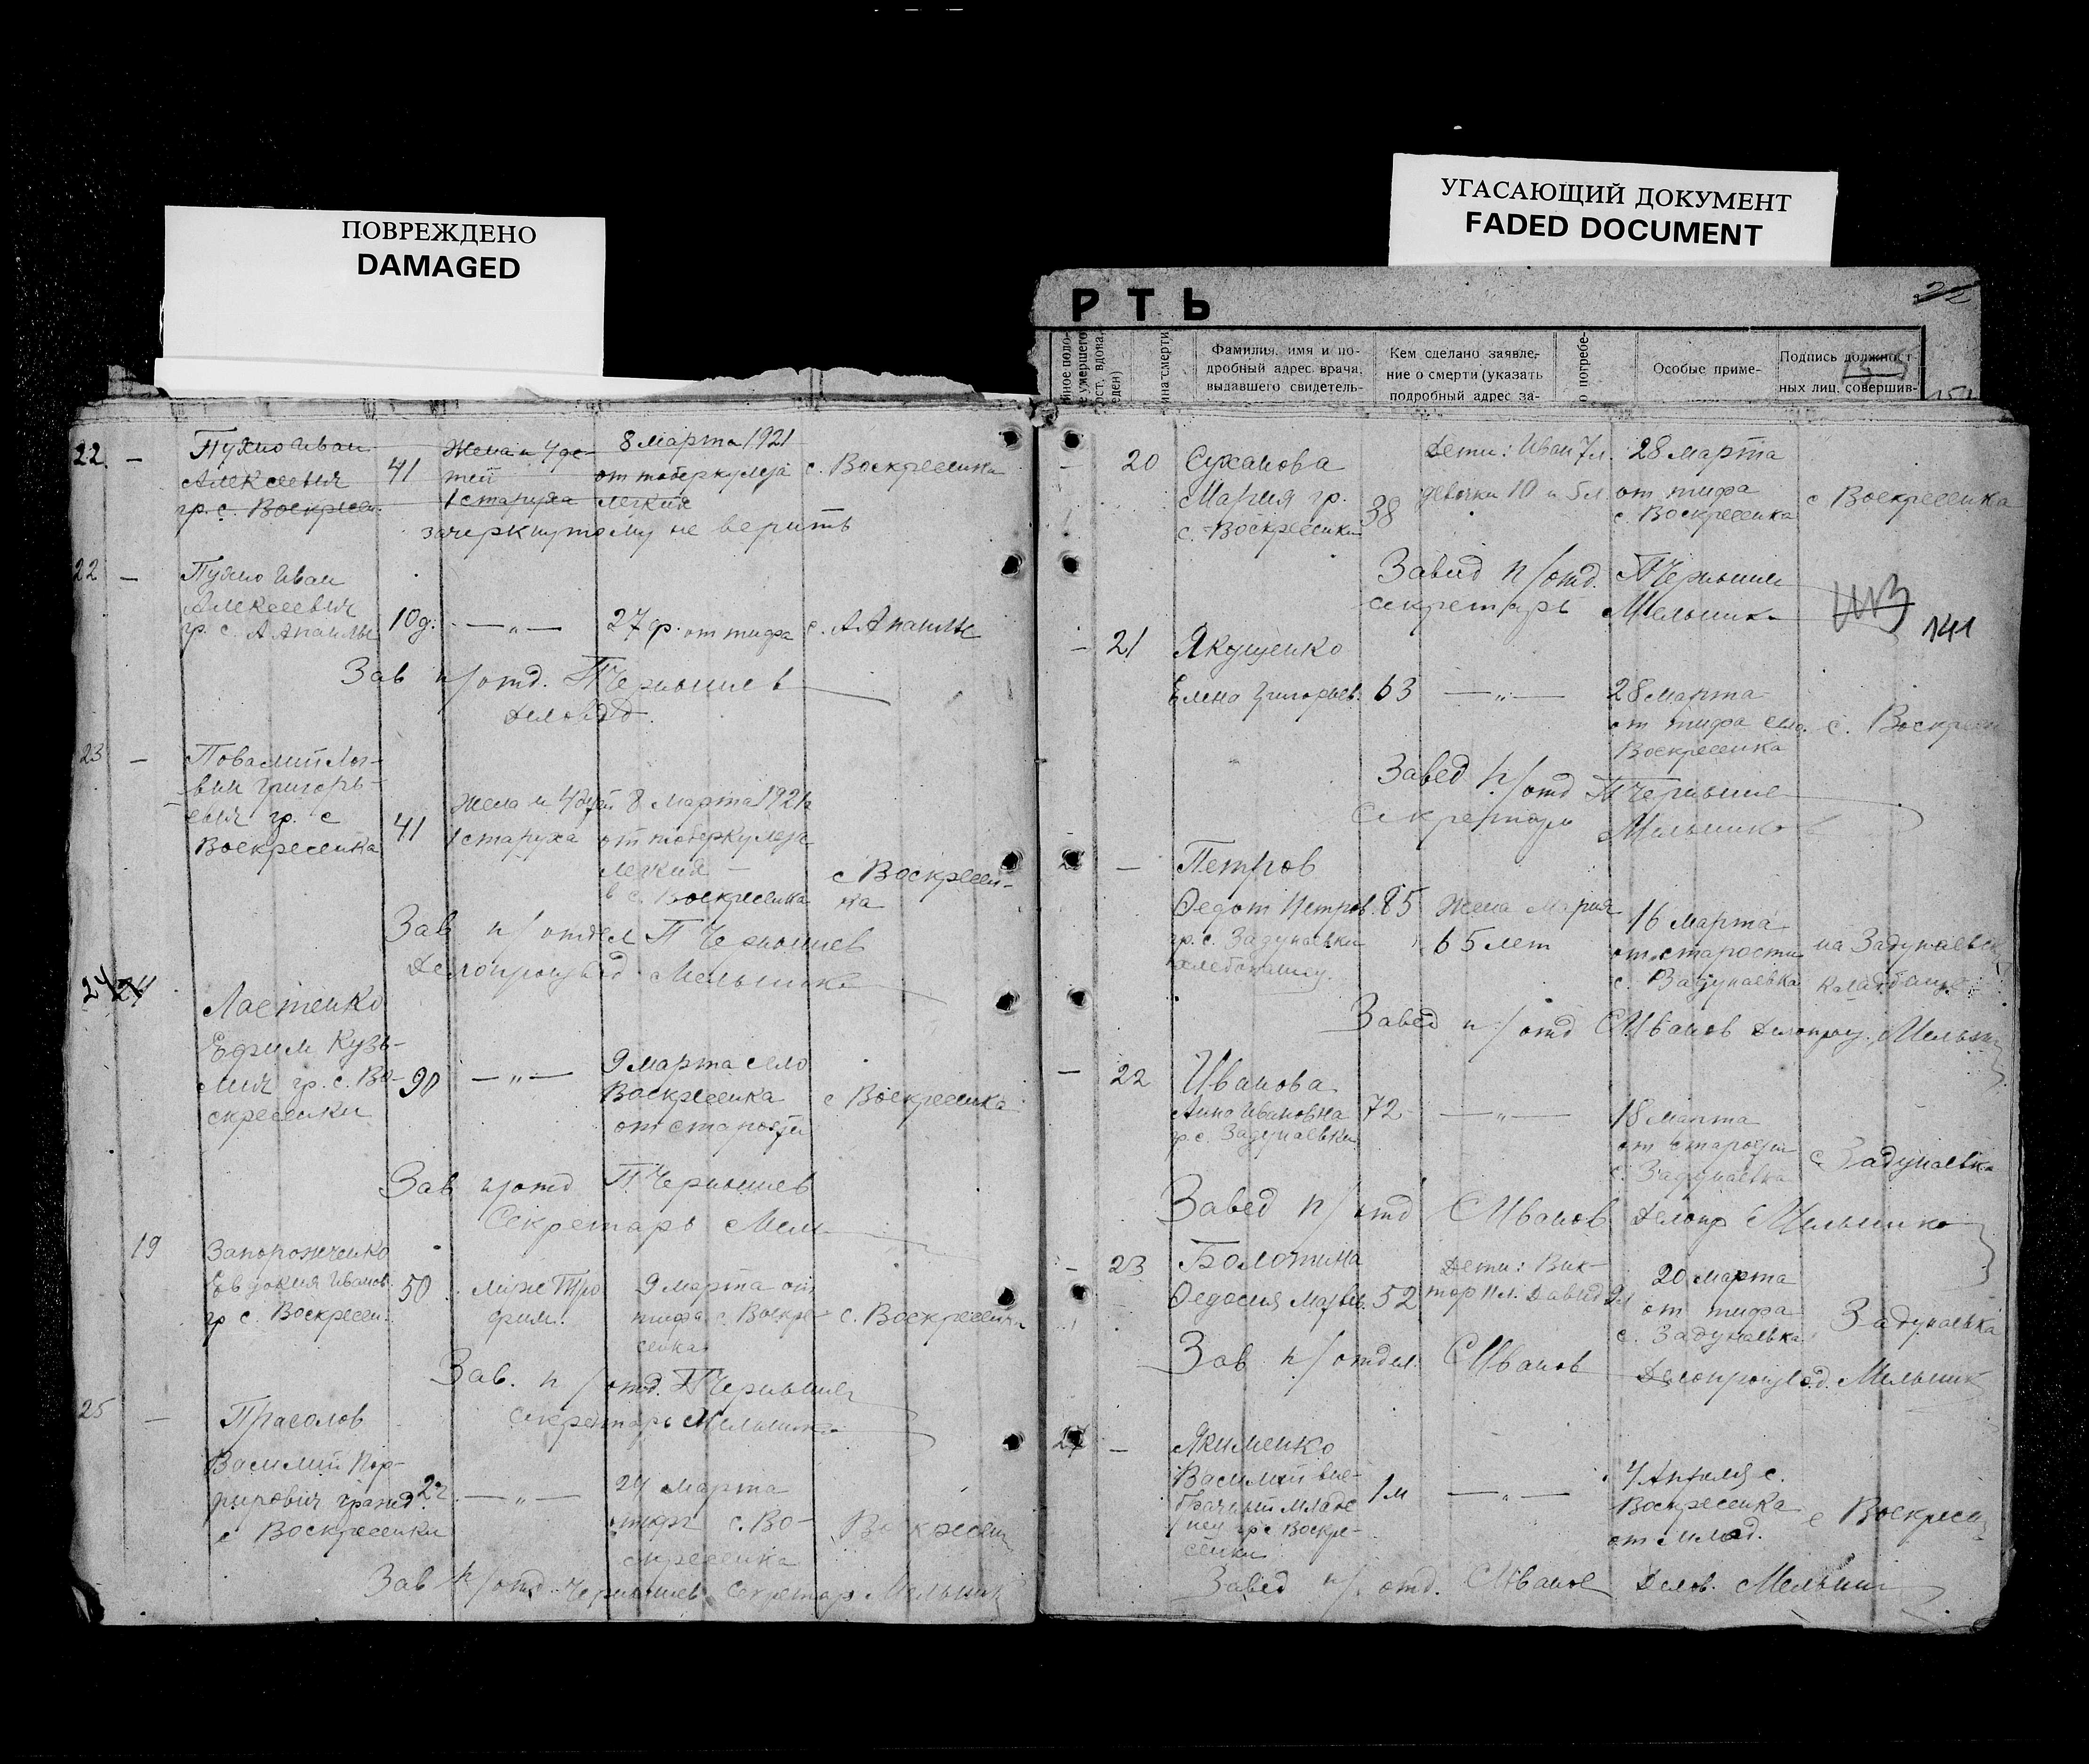 ПОВРЕЖДЕНО
DAMAGED
УГАСАЮЩИЙ ДОКУМЕНТ
FADED DOCUMENT
22 — Пухно Иван
Алексеевич 41
гр. с. Воскресен.
Жена и 4 де-
тей
1 старуха
8 марта 1921
от тоберкулеза
легких
с. Воскресенка
зачеркнутому не верить
22 — Пухно Иван
Алексеевич
гр. с. А Апаиль 10 д. — „ — 27 ф. от тифа с. А Апаиль
Зав п/отд. П Чернышев
Деловод
23 — Повалий Лог-
вин Григорь-
евич гр. с
Воскресенка 41
Жена и 4 детей
1 старуха
8 марта 1921
от тоберкулеза
легких —
в с. Воскресенка
с Воскресен-
ка
Зав п/отдел П Чернышев
Делопроизвод Мельник
24 Ластенко
Ефим Кузь-
мич гр. с. Во- 90 — „ —
скресенки
9 марта село
Воскресенка
от старости
с Воскресенка
Зав п/отд П. Чернышев
Секретарь Мел
19 Запорожченко
Евдокия Иванов. 50
гр с. Воскресен.
муж Тро
фим.
9 марта от
тифа с. Воскре-
сенка
с. Воскресенка
Зав. п/отд. П Чернышев
Секретарь Мельник
25 — Прасолов
Василий Пор-
фирович гражд. 22 — „ —
с Воскресенки
24 марта
тифа с. Во-
скресенка
Воскресен
Зав п/отд. Чернышев Секретар Мельник
РТЬ
22
Фамилия, имя и по-
дробный адрес врача,
выдавшего свидетель-
Кем сделано заявле-
ние о смерти (указать
подробный адрес за-
о погребе-
Особые приме-
Подпись должност-
ных лиц, совершив-
— 20 Суханова
Мария гр. 38
с. Воскресенки
Дети: Иван 7 л.
девочки 10 и 5 л.
28 марта
от тифа
с. Воскресенка
с Воскресенка
Завед п/отд. П Чернышев
секретарь Мельник
141
— 21 Якущенко
Елена Григорьев. 63 — „ —
28 марта
от тифа село
Воскресенка
с. Воскресен
Завед п/отд П Чернышев
Секретарь Мельников
— Петров
Федот Петров. 85
гр. с. Задунаевки
хлебопашец.
Жена Мария
65 лет
16 марта
от старости
с. Задунаевка
на Задунаевск
Завед п/отд С Иванов Делопроиз. Мельник
— 22 Иванова
Анна Ивановна 72 — „ —
гр с. Задунаевки
18 марта
от старости
с. Задунаевка
с Задунаевка
Завед п/отд С Иванов Делопр Мельник
— 23 Болотина
Федосия 52
Дети: Вик-
тор 11 л. Давид 9 л
20 марта
от тифа
с. Задунаевка
Задунаевка
Зав п/отдел. С Иванов Делопроизвод. Мельник
— Якименко
Василий вне-
брачный младе 1 м — „ —
нец гр с Воскре-
сенки
4 Апреля с.
Воскресенка
от млад.
с Воскресен
Завед п/отд. С Иванов Делов. Мельник